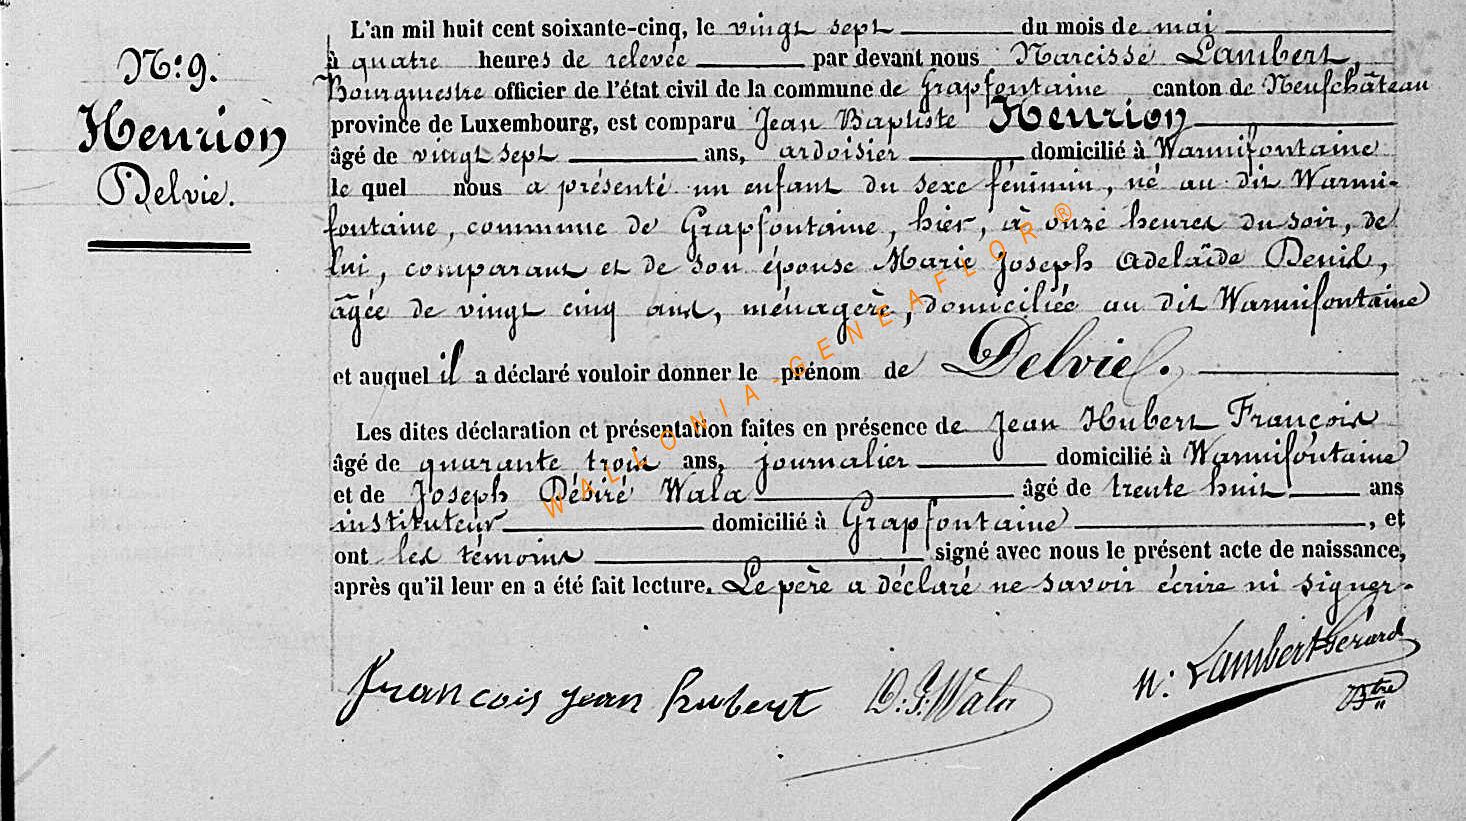 N° 9.
Henrion
Delvie.
L'an mil huit cent soixante-cinq, le vingt sept du mois de mai
à quatre heures de relevée par devant nous Narcisse Lambert,
Bourgmestre officier de l'état civil de la commune de Grapfontaine canton de Neufchâteau
province de Luxembourg, est comparu Jean Baptiste Henrion
âgé de vingt sept ans, ardoisier, domicilié à Warmifontaine
le quel nous a présenté un enfant du sexe féminin, né au dit Warmi-
fontaine, commune de Grapfontaine, hier, à onze heures du soir, de
lui, comparant et de son épouse Marie Joseph Adelaïde Denil,
âgée de vingt cinq ans, ménagère, domiciliée au dit Warmifontaine
et auquel il a déclaré vouloir donner le prénom de Delvie.
Les dites déclaration et présentation faites en présence de Jean Hubert François
âgé de quarante trois ans, journalier domicilié à Warmifontaine
et de Joseph Désiré Wala âgé de trente huit ans
instituteur domicilié à Grapfontaine, et
ont les témoins signé avec nous le présent acte de naissance,
après qu'il leur en a été fait lecture. Le père a déclaré ne savoir écrire ni signer.
François jean hubert D. J. Wala N. Lambert Gérard
Btre
WALLONIA-GENEAFLOR ®